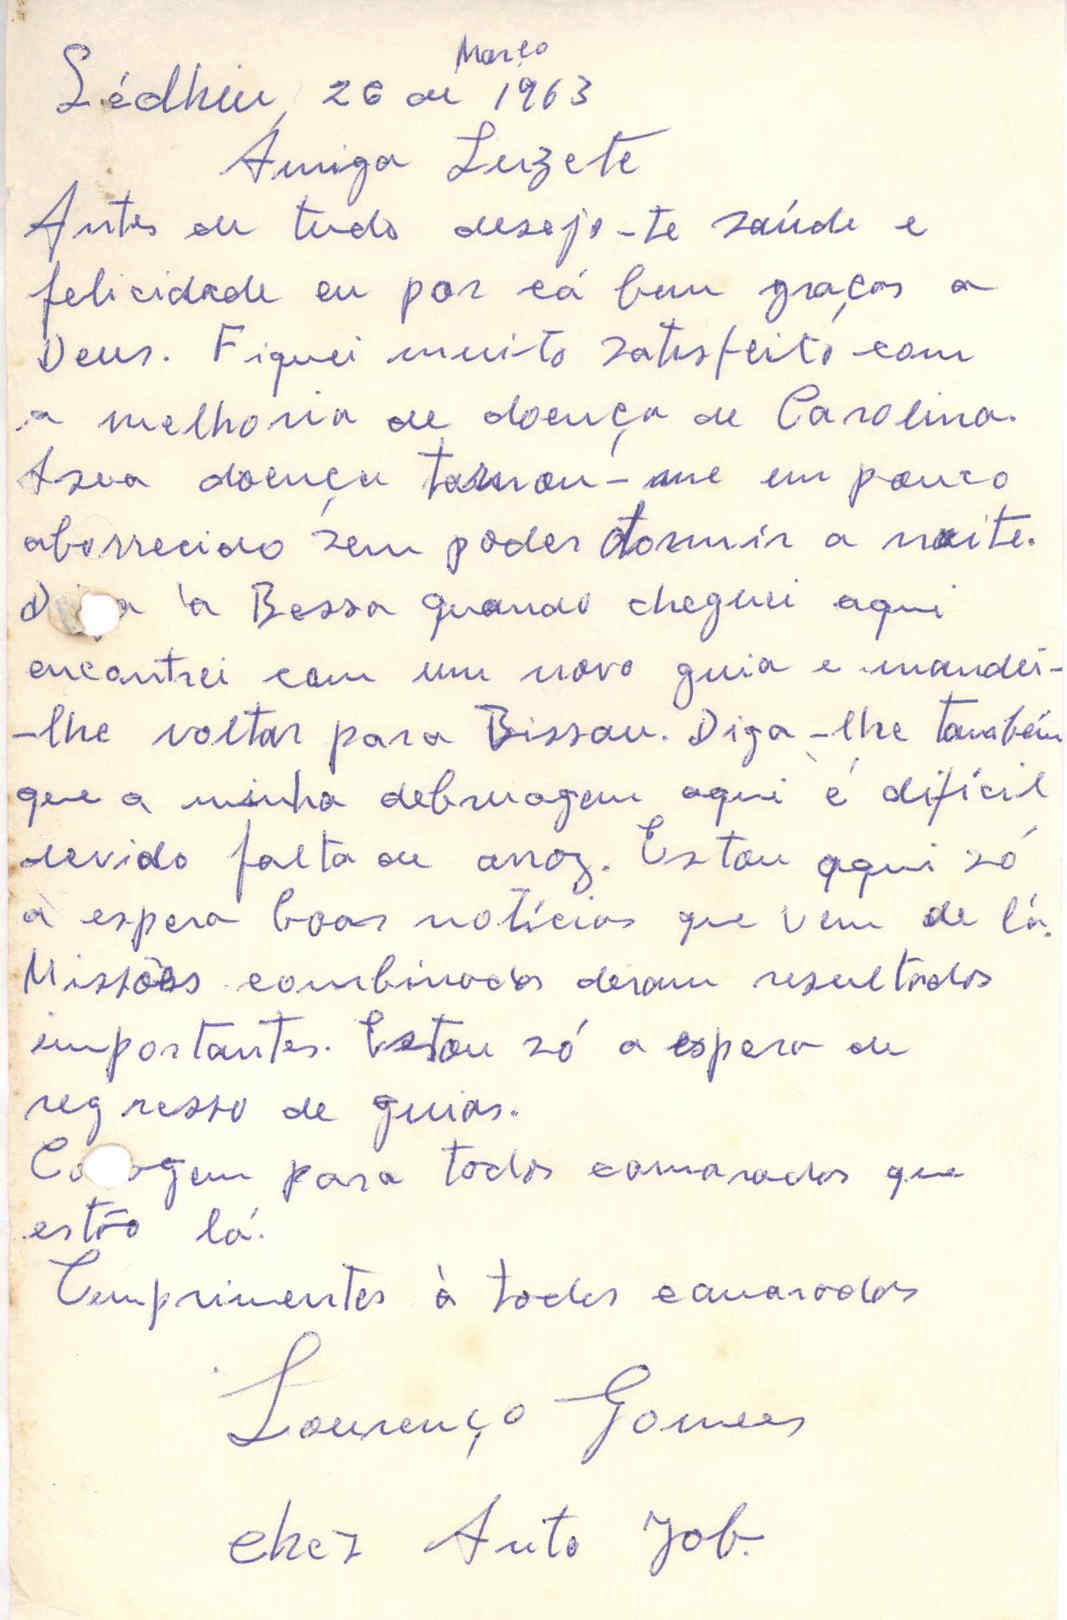 Março
Sédhiu, 26 de 1963
Amiga Luzete
Antes de tudo desejo-te saúde e
felicidade eu por cá bem graças a
Deus. Fiquei muito satisfeito com
a melhoria de doença de Carolina.
A sua doença tornou-me um pouco
aborrecido sem poder dormir a noite.
D a 'a Bessa quando cheguei aqui
encontrei com um novo guia e mandei-
-lhe voltar para Bissau. Diga-lhe também
que a minha debruagem aqui é difícil
devido falta de arroz. Estou aqui só
à espera boas notícias que vem de lá.
Missões combinadas deram resultados
importantes. Estou só a espera de
regresso de guias.
Co agem para todos camaradas que
estão lá.
Cumprimentos à todos camaradas
Lourenço Gomes
chez Anto Job.